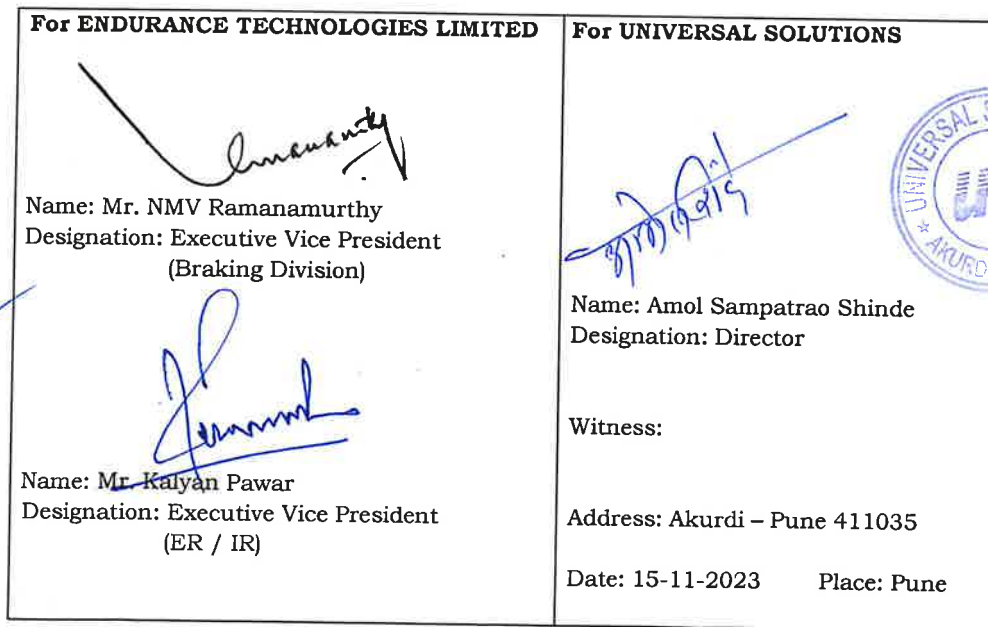 For ENDURANCE TECHNOLOGIES LIMITED
Name: Mr. NMV Ramanamurthy
Designation: Executive Vice President
(Braking Division)
Name: Mr. Kalyan Pawar
Designation: Executive Vice President
(ER / IR)
For UNIVERSAL SOLUTIONS
UNIVERSAL S
AKURD
Name: Amol Sampatrao Shinde
Designation: Director
Witness:
Address: Akurdi – Pune 411035
Date: 15-11-2023 Place: Pune